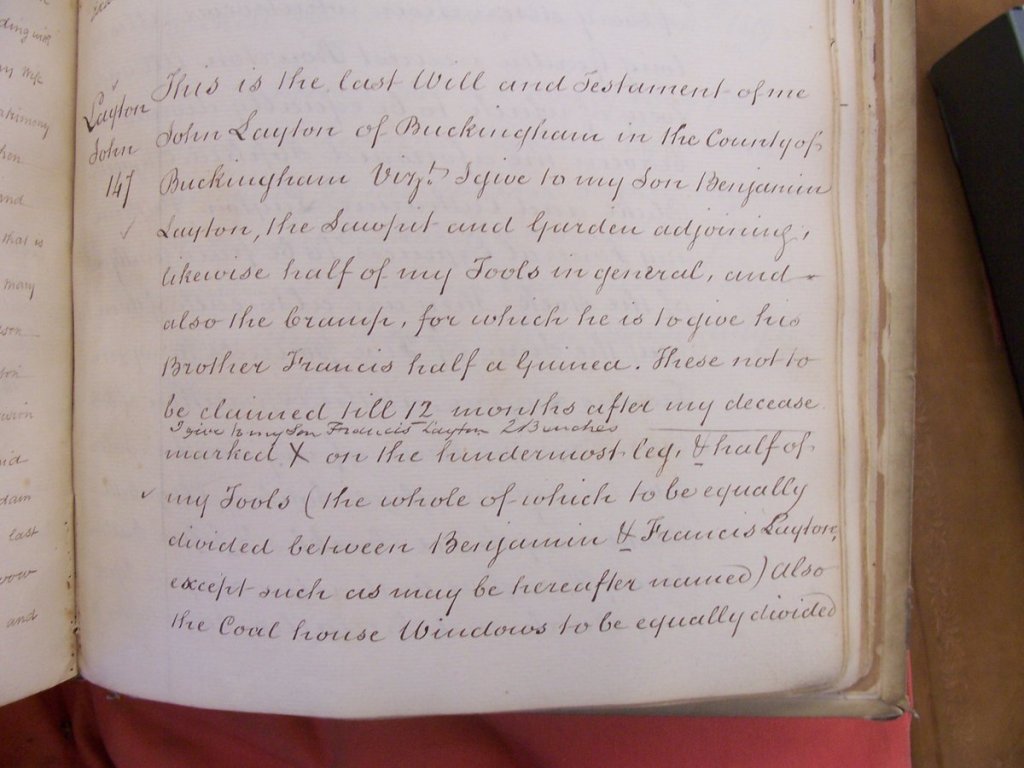 ding with
my Wife
atrimony
and
that is
many
dam
last
and
Layton
John
147
This is the last Will and Testament of me
John Layton of Buckingham in the County of
Buckingham Vizt. I give to my Son Benjamin
Layton, the Sawpit and Garden adjoining,
likewise half of my Tools in general, and
also the Cramp, for which he is to give his
Brother Francis half a Guinea. These not to
be claimed till 12 months after my decease.
I give to my Son Francis Layton 2 Benches
marked X on the hindermost leg, & half of
my Tools (the whole of which to be equally
divided between Benjamin & Francis Layton,
except such as may be hereafter named) also
the Coal house Windows to be equally divided